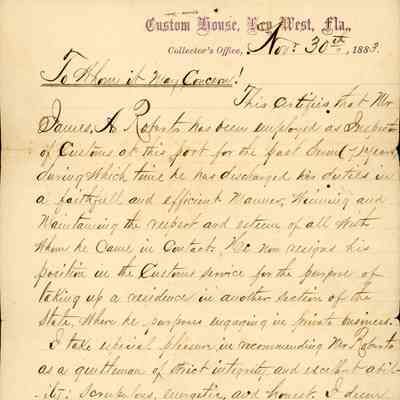 Custom House, Key West, Fla.,
Collector's Office, Novr 30th, 1883.
To Whom it May Concern!
This Certifies that Mr
James A Roberts has been employed as Inspector
of Customs at this port for the past Seven (7) years,
during which time he has discharged his duties in
a faithfull and efficient manner, Winning and
Maintaining the respect and esteem of all with
Whom he Came in Contact. He now resigns his
position in the Customs service for the purpose of
taking up a residence in another section of the
State, Where he purposes engaging in private business.
I take especial pleasure in recommending Mr Roberts
as a gentleman of strict integrity, and excellent abil-
ity; scrupulous, energetic, and honest. I desire